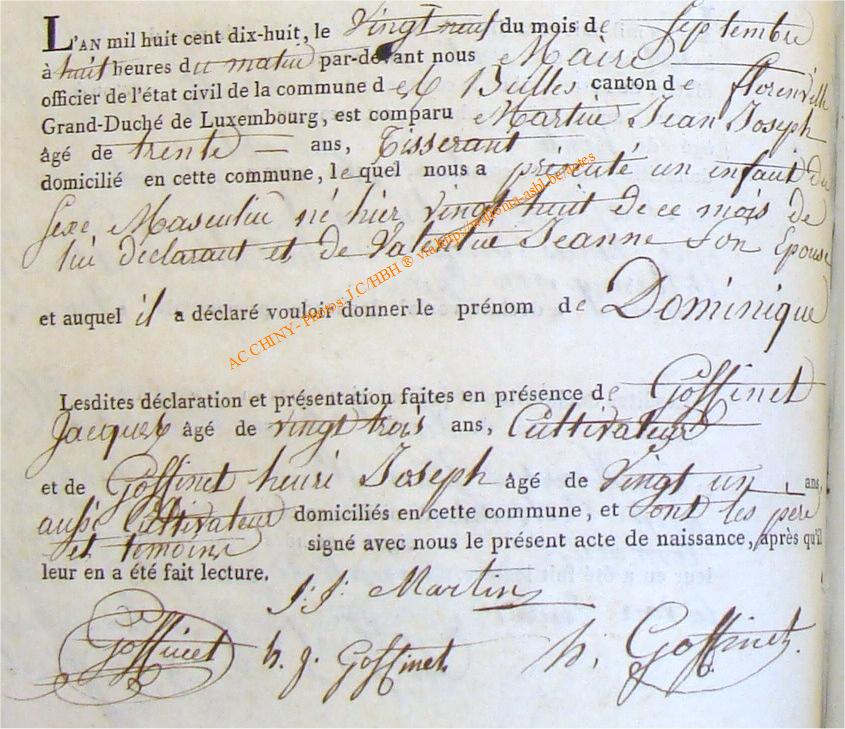 L'AN mil huit cent dix-huit, le Vingt neuf du mois de Septembre
à huit heures du matin par-devant nous Maire
officier de l'état civil de la commune des Bulles canton de florenville
Grand-Duché de Luxembourg, est comparu Martin Jean Joseph
âgé de trente ans, Tisserant
domicilié en cette commune, lequel nous a présenté un enfant du
sexe Masculin né hier vingt huit de ce mois de
lui déclarant et de Valentin Jeanne Son Epouse
et auquel il a déclaré vouloir donner le prénom de Dominique
AC CHINY - Photos J C/HBH ®
Lesdites déclaration et présentation faites en présence de Goffinet
Jacques âgé de vingt trois ans, Cultivateur
et de Goffinet henri Joseph âgé de Vingt un ans,
aussi Cultivateur domiciliés en cette commune, et ont les père
et temoins signé avec nous le présent acte de naissance, après qu'il
leur en a été fait lecture.
J: J: Martin
Goffinet h. j. Goffinet. h. Goffinet.